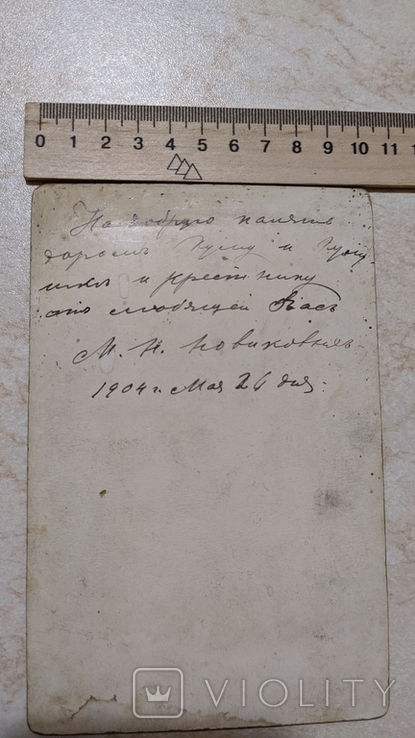 0 1 2 3 4 5 6 7 8 9 10 11
На добрую память
дорогимъ Куму и Кумѣ
и крестнику
отъ любящей Васъ
М. Н. Новиковыхъ
1904 г. Мая 26 дня.
VIOLITY